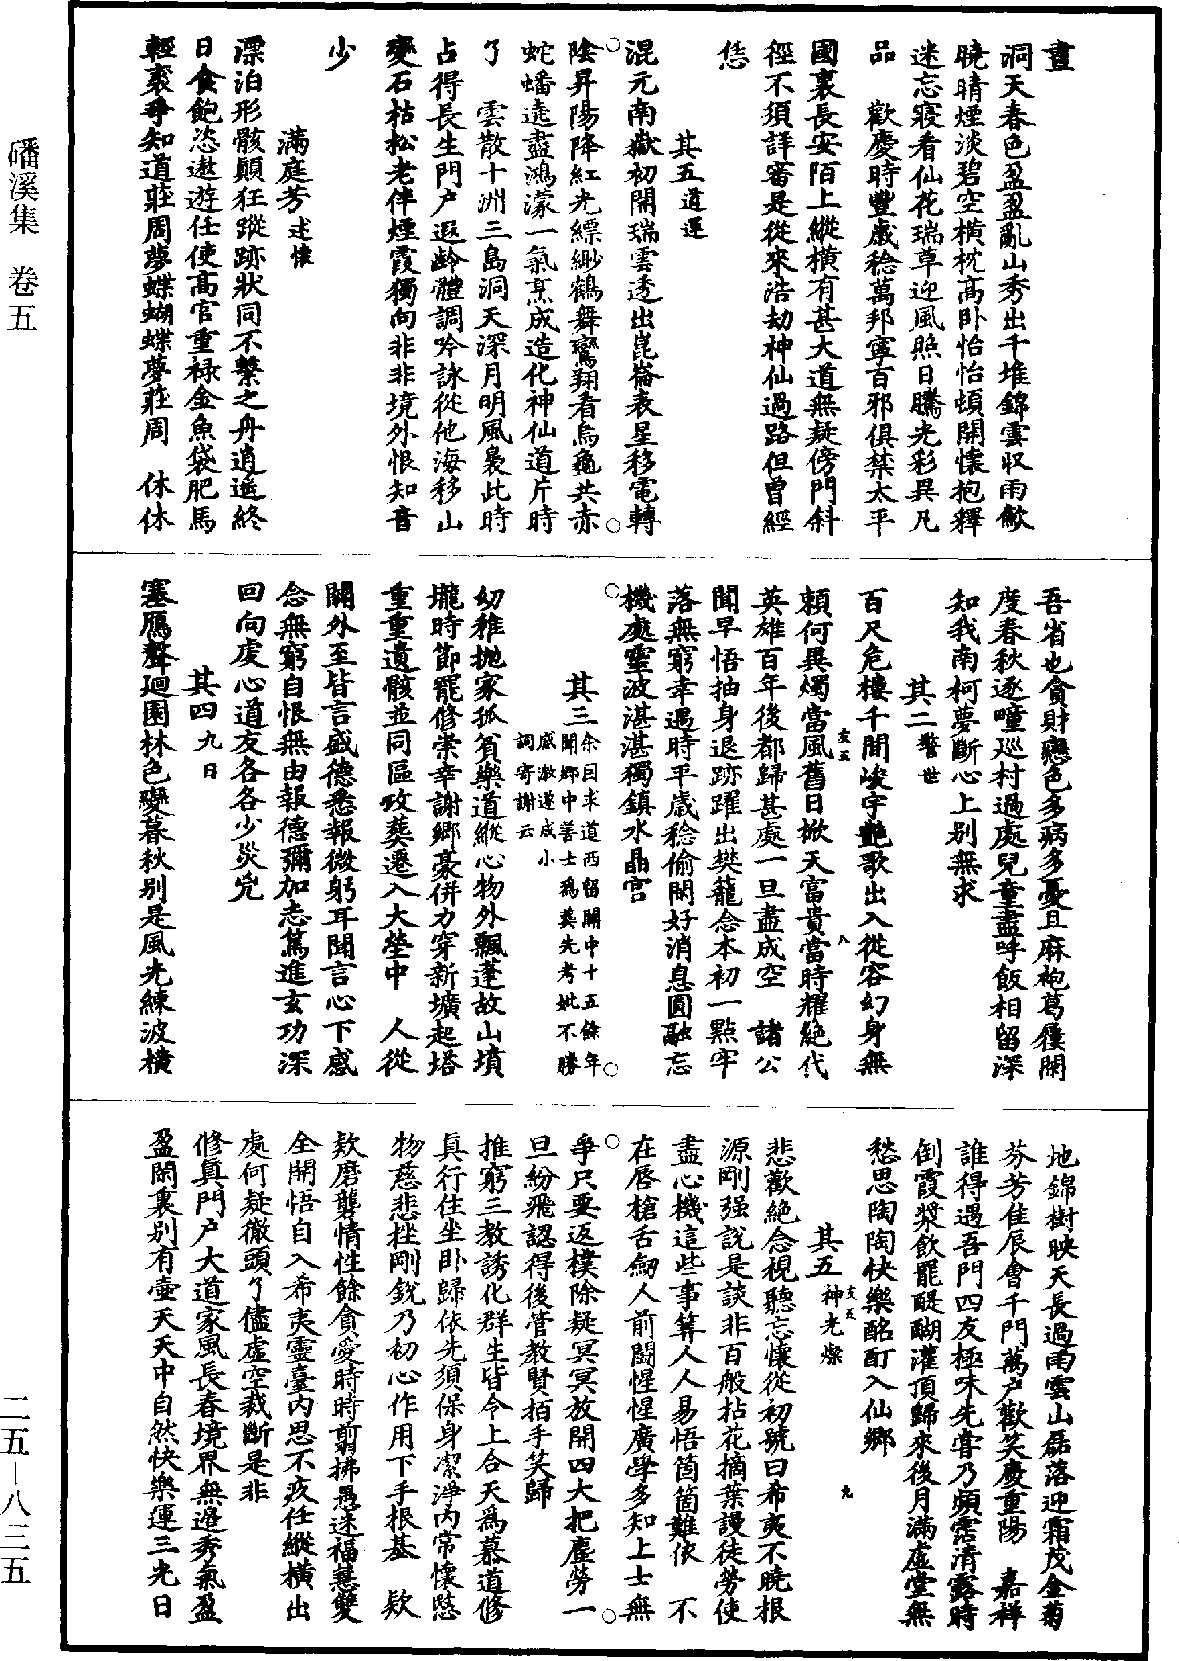 磻溪集　卷五
二五－八三五
畫
洞天春色盈盈亂山秀出千堆錦雲收雨歇
曉晴煙淡碧空橫枕高卧怡怡頓開懷抱釋
迷忘寢看仙花瑞草迎風照日騰光彩異凡
品　歡慶時豐歲稔萬邦寧百邪俱禁太平
國裏長安陌上縱橫有甚大道無疑傍門斜
徑不須詳審是從來浩劫神仙過路但曾經
恁
其五道運
混元南嶽初開瑞雲透出崑崙表星移電轉
陰昇陽降紅光縹緲鶴舞鸞翔看烏龜共赤
蛇蟠遶盡鴻濛一氣烹成造化神仙道片時
了　雲散十洲三島洞天深月明風裊此時
占得長生門户遐齡體調吟詠從他海移山
變石枯松老伴煙霞獨向非非境外恨知音
少
滿庭芳述懷
漂泊形骸顛狂蹤跡狀同不繫之舟逍遙終
日食飽恣遨遊任使高官重祿金魚袋肥馬
輕裘爭知道莊周夢蝶蝴蝶夢莊周　休休
吾省也貪財戀色多病多憂且麻袍葛履閑
度春秋逐疃巡村過處兒童盡呼飯相留深
知我南柯夢斷心上别無求
其二警世
百尺危樓千間峻宇艷歌出入從容幻身無
賴何異燭當風舊日掀天富貴當時耀絶代
英雄百年後都歸甚處一旦盡成空　諸公
聞早悟抽身退跡躍出樊籠念本初一點牢
落無窮幸遇時平歲稔偷閑好消息圓融忘
機處靈波湛湛獨鎮水晶宫
其三余因求道西留關中十五餘年
聞鄉中善士爲葬先考妣不勝
感激遂成小
詞寄謝云
幼稚抛家孤貧樂道縱心物外飄蓬故山墳
壠時節罷修崇幸謝鄉豪併力穿新壙起塔
重重遺骸並同區攷葬遷入大塋中　人從
關外至皆言盛德悉報微躬耳聞言心下感
念無窮自恨無由報德彌加志篤進玄功深
回向虔心道友各各少災兇
其四九日
塞鴈聲廻園林色變暮秋别是風光練波横
地錦樹映天長過雨雲山磊落迎霜茂金菊
芬芳佳辰會千門萬户歡笑慶重陽　嘉祥
誰得遇吾門四友極味先嘗乃頻霑清露時
倒霞漿飲罷醍醐灌頂歸來後月滿虛堂無
愁思陶陶快樂酩酊入仙鄉
其五神光燦
悲歡絶念視聽忘懷從初號曰希夷不曉根
源剛强説是談非百般拈花摘葉謾徒勞使
盡心機這些事筭人人易悟箇箇難依　不
在唇槍舌劒人前鬭惺惺廣學多知上士無
爭只要返樸除疑冥冥放開四大把塵勞一
旦紛飛認得後管教賢拍手笑歸
推窮三教誘化群生皆今上合天爲慕道修
真行住坐卧歸依先須保身潔淨内常懷慜
物慈悲挫剛銳乃初心作用下手根基　欵
欵磨礱情性餘貪愛時時剪拂愚迷福慧雙
全開悟自入希夷靈臺内思不疚任縱横出
處何疑徹頭了儘虛空裁斷是非
修真門户大道家風長春境界無邊秀氣盈
盈閬裏别有壷天天中自然快樂運三光日